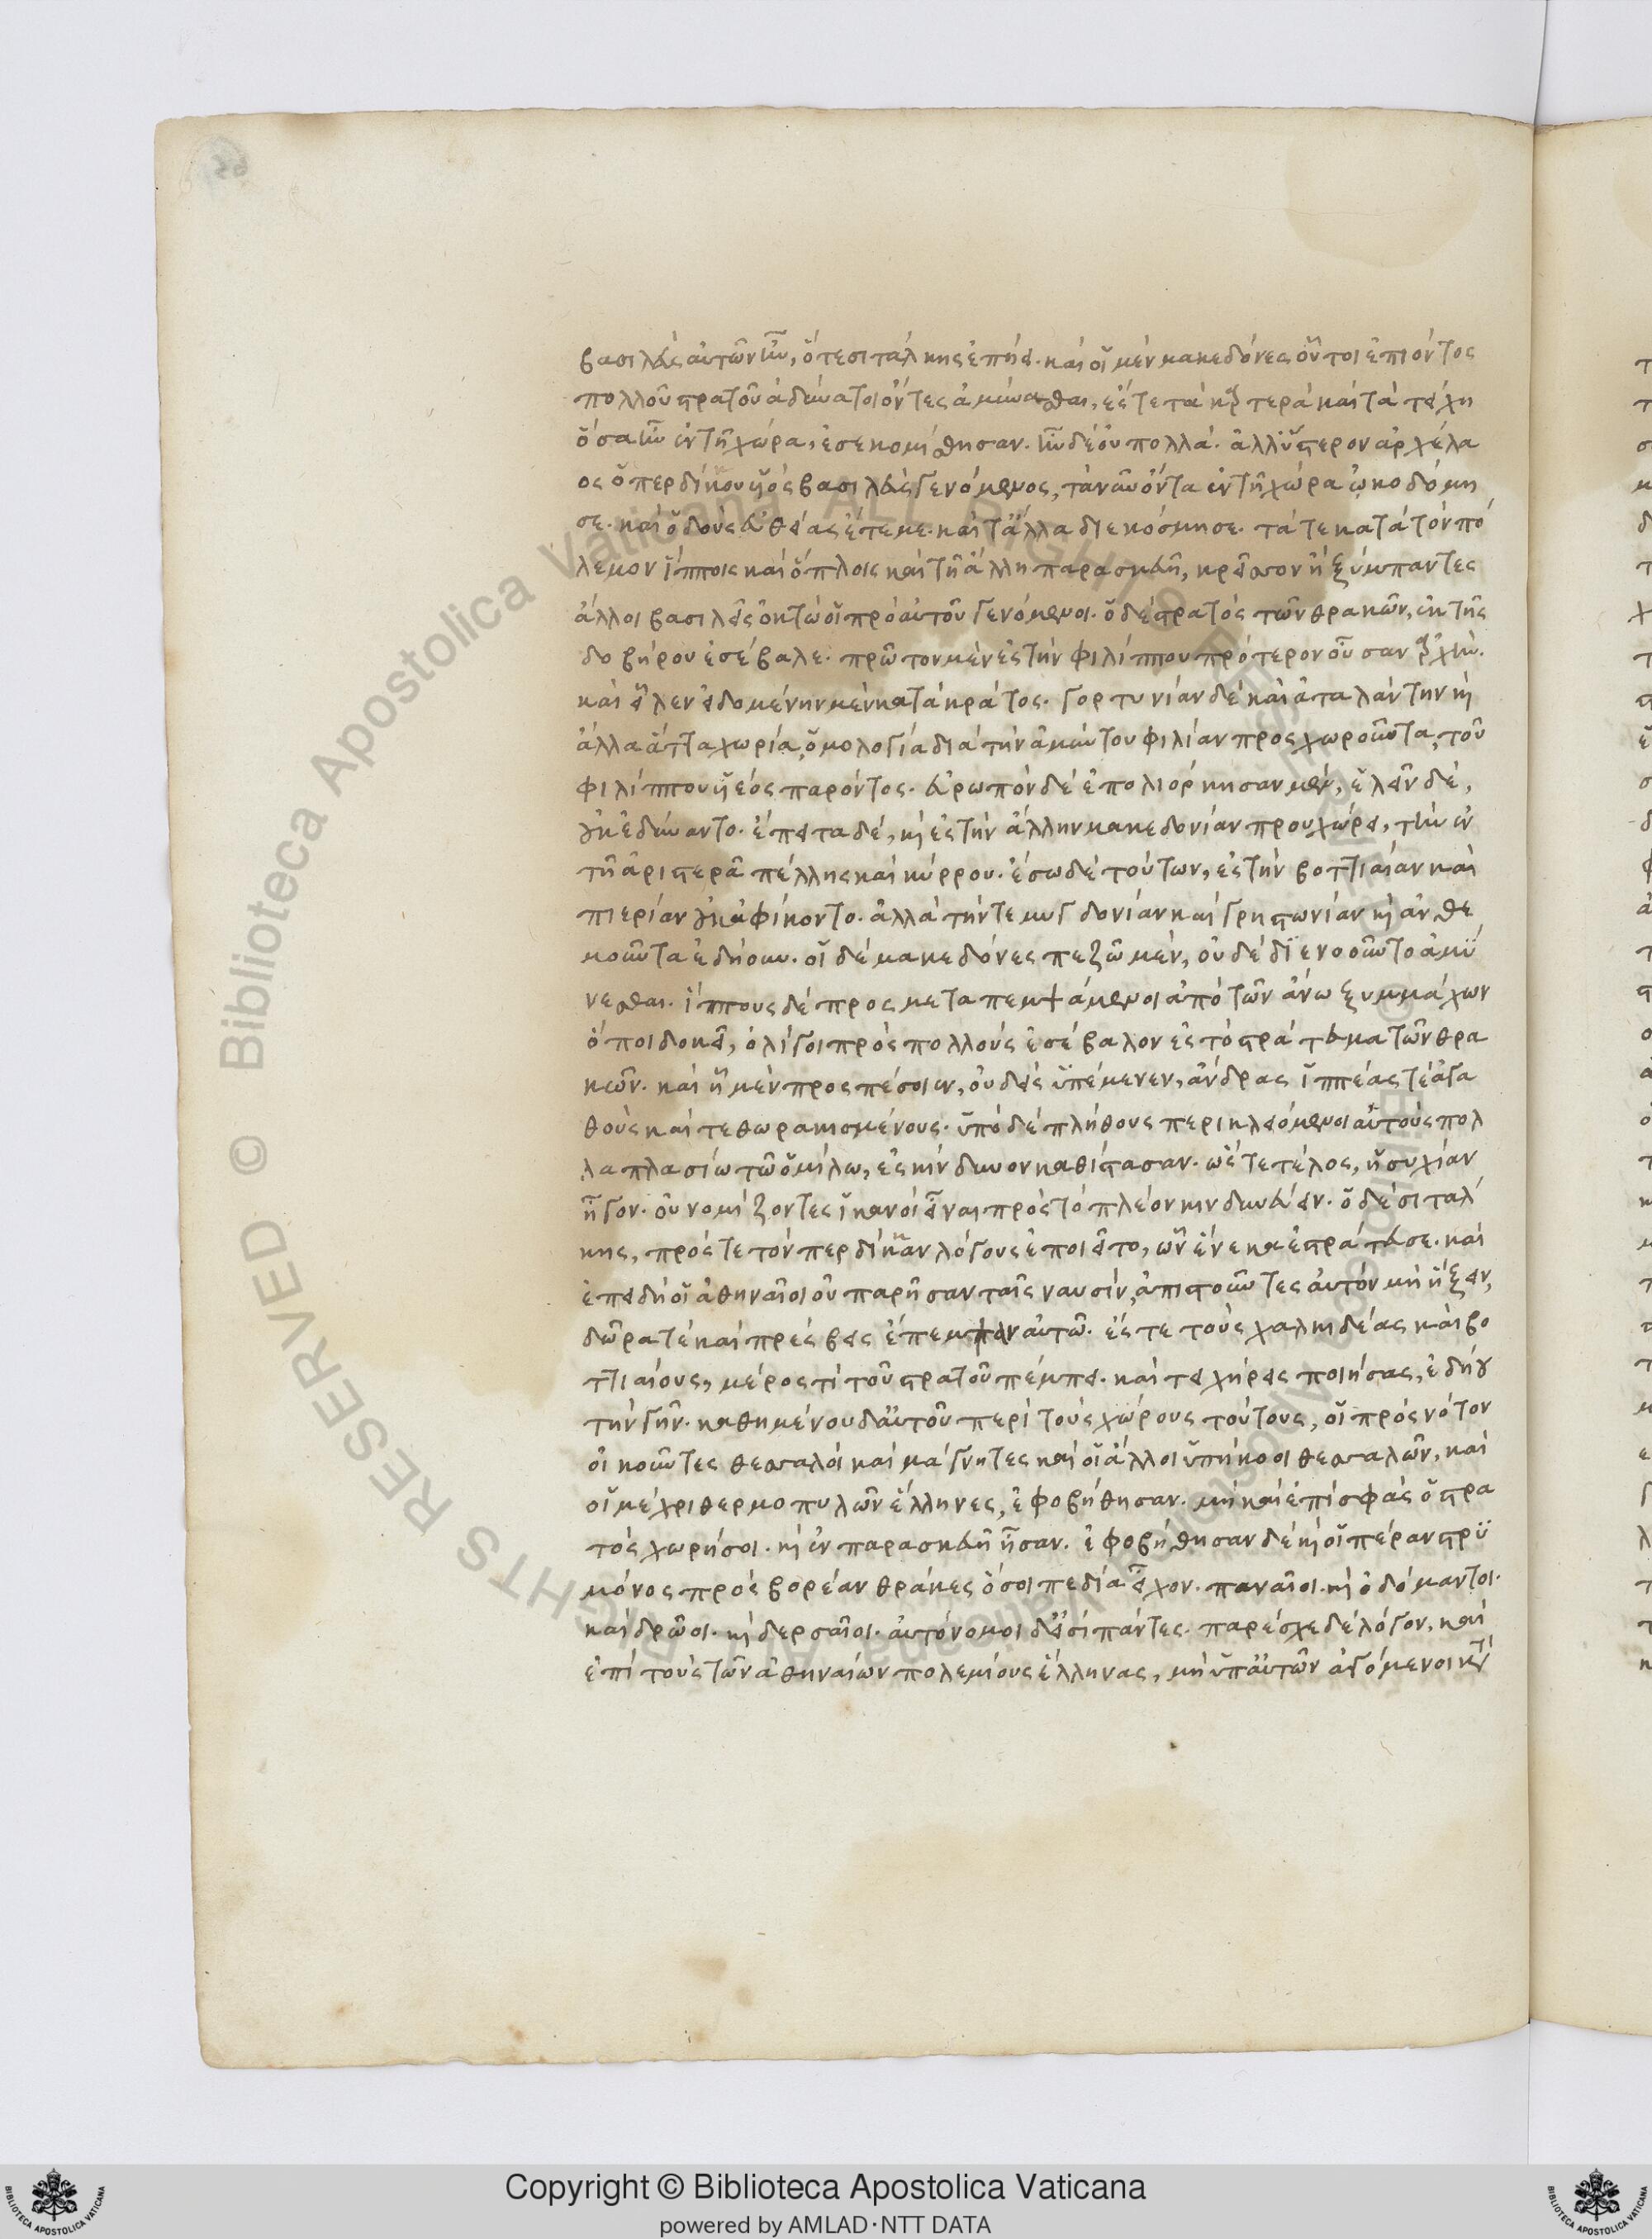 βασιλεὺς αὐτῶν ἦν, ὅτε σιτάλκης ἐπήει. καὶ οἱ μὲν μακεδόνες οὗτοι ἐπιόντος
πολλοῦ στρατοῦ ἀδύνατοι ὄντες ἀμύνασθαι, ἔς τε τὰ καρτερὰ καὶ τὰ τείχη
ὅσα ἦν ἐν τῆ χώρα, ἐσεκομίσθησαν. ἦν δὲ οὐ πολλά. ἀλλ' ὕστερον ἀρχέλα
ος ὁ περδίκκου υἱὸς βασιλεὺς γενόμενος, τὰ νῦν ὄντα ἐν τῆ χώρα ὠκοδόμη
σε. καὶ ὁδοὺς εὐθείας ἔτεμε. καὶ τἄλλα διεκόσμησε. τά τε κατὰ τὸν πό
λεμον ἵπποις καὶ ὅπλοις καὶ τῆ ἄλλη παρασκευῆ, κρεῖσσον ἢ ξύμπαντες
ἄλλοι βασιλεῖς ὀκτὼ οἱ πρὸ αὐτοῦ γενόμενοι. ὁ δὲ στρατὸς τῶν θρακῶν, ἐκ τῆς
δοβήρου ἐσέβαλε. πρῶτον μὲν ἐς τὴν φιλίππου πρότερον οὖσαν ἀρχήν.
καὶ εἷλεν εἰδομένην μὲν κατὰ κράτος. γορτυνίαν δὲ καὶ ἀταλάντην καὶ
ἄλλα ἄττα χωρία, ὁμολογία διὰ τὴν ἀμύντου φιλίαν προσχωροῦντα, τοῦ
φιλίππου υἱέος παρόντος. εὐρωπὸν δὲ ἐπολιόρκησαν μέν, ἑλεῖν δέ,
οὐκ ἐδύναντο. ἔπειτα δέ, καὶ ἐς τὴν ἄλλην μακεδονίαν προυχώρει, τὴν ἐν
τῆ ἀριστερᾶ πέλλης καὶ κύρρου. ἔσω δὲ τούτων, ἐς τὴν βοττιαίαν καὶ
πιερίαν οὐκ ἀφίκοντο. ἀλλὰ τήν τε μυγδονίαν καὶ γρηστωνίαν καὶ ἀνθε
μοῦντα ἐδήουν. οἱ δὲ μακεδόνες πεζῶ μέν, οὐδὲ διενοοῦντο ἀμύ
νεσθαι. ἵππους δὲ προσμεταπεμψάμενοι ἀπὸ τῶν ἄνω ξυμμάχων
ὅποι δοκεῖ, ὀλίγοι πρὸς πολλοὺς ἐσέβαλον ἐς τὸ στράτευμα τῶν θρα
κῶν. καὶ ἧ μὲν προσπέσοιεν, οὐδεὶς ὑπέμενεν, ἄνδρας ἱππέας τὲ ἀγα
θοὺς καὶ τεθωρακισμένους. ὑπὸ δὲ πλήθους περικλειόμενοι αὑτοὺς πολ
λαπλασίω τῶ ὁμίλω, ἐς κίνδυνον καθίστασαν. ὥστε τέλος, ἡσυχίαν
ἦγον. οὐ νομίζοντες ἱκανοὶ εἶναι πρὸς τὸ πλέον κινδυνεύειν. ὁ δὲ σιτάλ
κης, πρός τε τὸν περδίκκαν λόγους ἐποιεῖτο, ὧν ἕνεκα ἐστράτευσε. καὶ
ἐπειδὴ οἱ ἀθηναῖοι οὐ παρῆσαν ταῖς ναυσίν, ἀπιστοῦντες αὐτὸν μὴ ἥξειν,
δῶρα τὲ καὶ πρέσβεις ἔπεμψαν αὐτῶ. ἔς τε τοὺς χαλκιδέας καὶ βο
ττιαίους, μέρος τὶ τοῦ στρατοῦ πέμπει. καὶ τειχήρεις ποιήσας, ἐδήου
τὴν γῆν. καθημένου δ' αὐτοῦ περὶ τοὺς χώρους τούτους, οἱ πρὸς νότον
οἰκοῦντες θεσσαλοὶ καὶ μάγνητες καὶ οἱ ἄλλοι ὑπήκοοι θεσσαλῶν, καὶ
οἱ μέχρι θερμοπυλῶν ἕλληνες, ἐφοβήθησαν. μὴ καὶ ἐπὶ σφᾶς ὁ στρα
τὸς χωρήσοι. καὶ ἐν παρασκευῆ ἦσαν. ἐφοβήθησαν δὲ καὶ οἱ πέραν στρυ
μόνος πρὸς βορέαν θρᾶκες ὅσοι πεδία εἶχον. παναῖοι. καὶ ὀδόμαντοι.
καὶ δρῶοι. καὶ δερσαῖοι. αὐτόνομοι δ' εἰσὶ πάντες. παρέσχε δὲ λόγον, καὶ
ἐπὶ τοὺς τῶν ἀθηναίων πολεμίους ἕλληνας, μὴ ὑπ' αὐτῶν ἀγόμενοι κατὰ
Copyright © Biblioteca Apostolica Vaticana
powered by AMLAD·NTT DATA